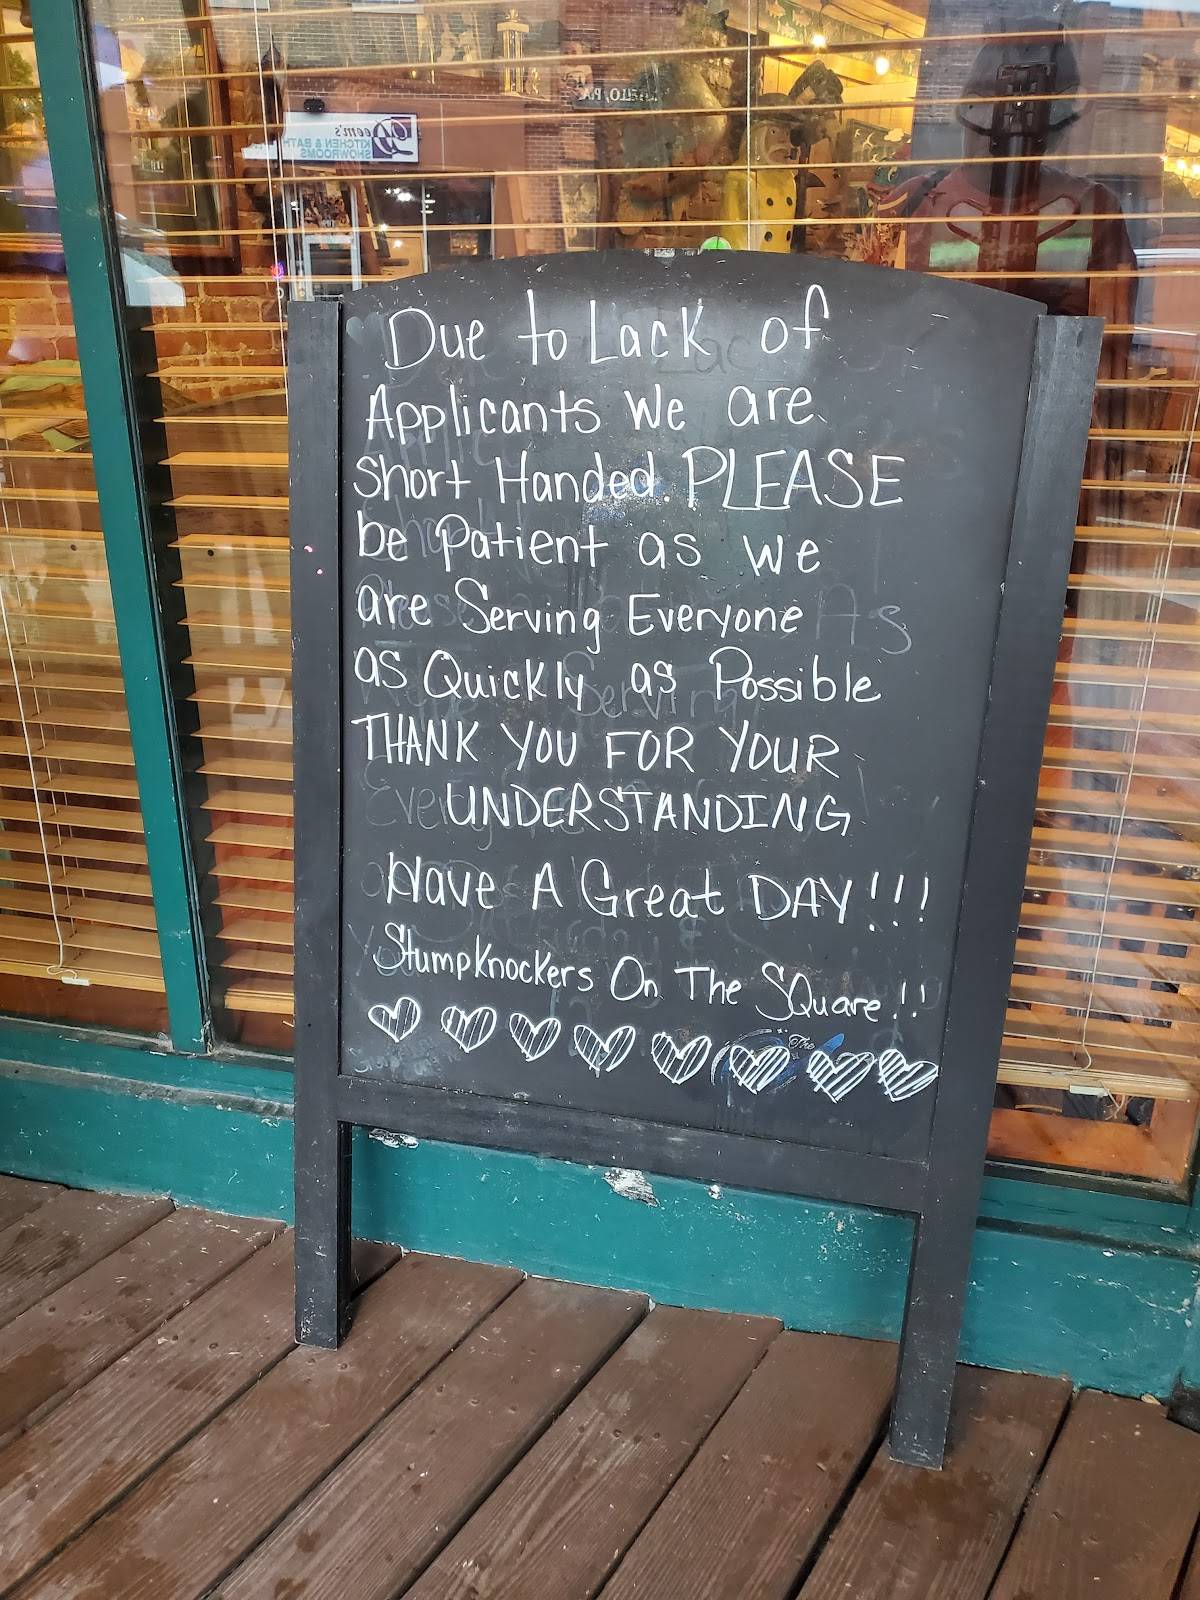 eem's
KITCHEN & BATH
SHOWROOMS
Due to Lack of
Applicants We are
Short Handed. PLEASE
be Patient as we
are Serving Everyone
as Quickly as Possible
THANK YOU FOR YOUR
UNDERSTANDING
Have A Great DAY!!!
Stumpknockers On The SQuare!!
The